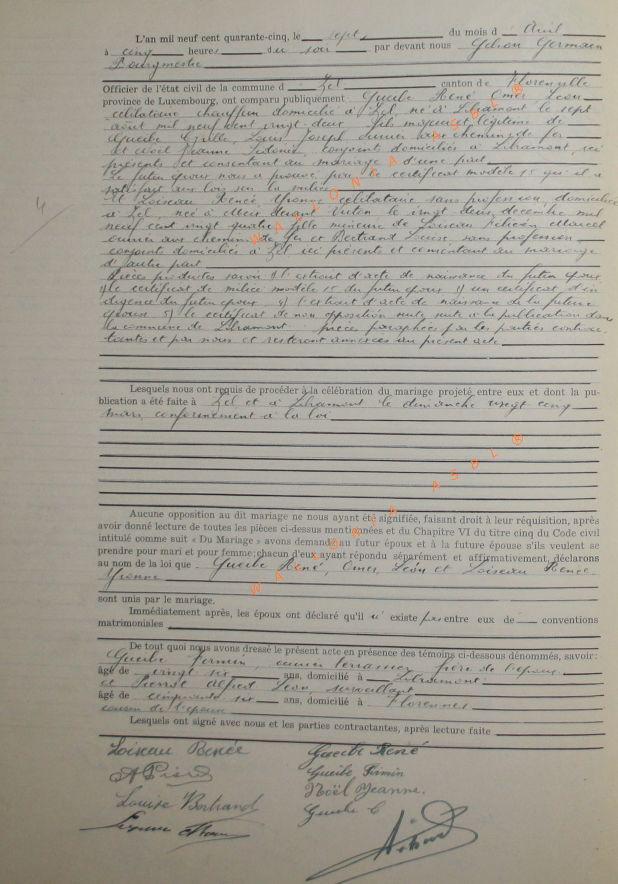 L'an mil neuf cent quarante-cinq, le sept du mois d Avril
à cinq heures du soir par devant nous Germain
Bourgmestre
Officier de l'état civil de la commune d canton de Florenville
province de Luxembourg, ont comparu publiquement Gueibe René Omer Léon
célibataire chauffeur domicilié à né à Libramont le sept
août mil neuf cent vingt-deux, fils majeur légitime de
Gueibe Louis Joseph ouvrier aux chemins de fer
et Noël Jeanne conjoints domiciliés à Libramont, ici
présents et consentant au mariage d'une part
Le futur époux nous a prouvé par le certificat modèle 15 qu'il a
satisfait aux lois sur la milice
Et Loiseau Renée Yvonne célibataire sans profession, domiciliée
à née à Meix devant Virton le vingt deux décembre mil
neuf cent vingt quatre fille mineure de Loiseau Marcel
ouvrier aux chemins de fer et Bertrand Louise, sans profession
conjoints domiciliés à ici présents et consentant au mariage
d'autre part
Pièces produites savoir 1) l'extrait d'acte de naissance du futur époux
2) le certificat de milice modèle 15 du futur époux 3) un certificat d'in
digence du futur époux, 4) l'extrait d'acte de naissance de la future
épouse 5) le certificat de non opposition suite à la publication dans
la commune de Libramont pièces paraphées par les parties contrac
tantes et par nous et resteront annexées au présent acte
Lesquels nous ont requis de procéder à la célébration du mariage projeté entre eux et dont la pu-
blication a été faite à et à Libramont le dimanche vingt cinq
mars, conformément à la loi
Aucune opposition au dit mariage ne nous ayant été signifiée, faisant droit à leur réquisition, après
avoir donné lecture de toutes les pièces ci-dessus mentionnées et du Chapitre VI du titre cinq du Code civil
intitulé comme suit « Du Mariage » avons demandé au futur époux et à la future épouse s'ils veulent se
prendre pour mari et pour femme; chacun d'eux ayant répondu séparément et affirmativement, déclarons
au nom de la loi que Gueibe René, Omer, Léon et Loiseau Renée
Yvonne
sont unis par le mariage.
Immédiatement après, les époux ont déclaré qu'il n'existe pas entre eux de conventions
matrimoniales
De tout quoi nous avons dressé le présent acte en présence des témoins ci-dessous dénommés, savoir:
Gueibe Firmin, ouvrier terrassier, frère de l'époux
âgé de vingt six ans, domicilié à Libramont
et Alfred Léon, surveillant
âgé de cinquante six ans, domicilié à Florennes
cousin de l'épouse
Lesquels ont signé avec nous et les parties contractantes, après lecture faite
Loiseau Renée Gueibe René
Gueibe Firmin
Noël Jeanne.
Louise Bertrand
WALLONIA ASBL ®
WALLONIA ASBL ®